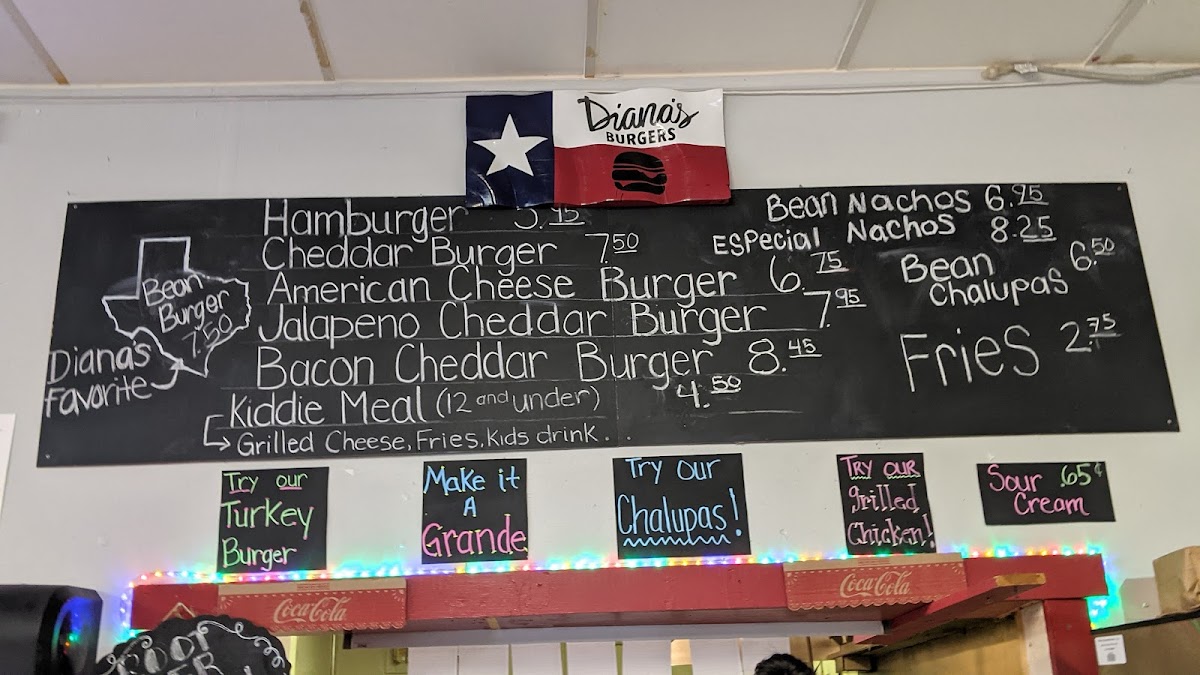 Diana's
BURGERS
Hamburger 5.95
Cheddar Burger 7.50
American Cheese Burger 6.75
Jalapeno Cheddar Burger 7.95
Bacon Cheddar Burger 8.45
Kiddie Meal (12 and under) 4.50
Grilled Cheese, Fries, Kids drink...
Bean
Burger
7.50
Diana's
Favorite
Bean Nachos 6.95
Especial Nachos 8.25
Bean
Chalupas 6.50
Fries 2.75
Try our
Turkey
Burger
Make it
A
Grande
Try our
Chalupas!
Try our
grilled
Chicken!
Sour .65¢
Cream
Coca-Cola
Coca-Cola